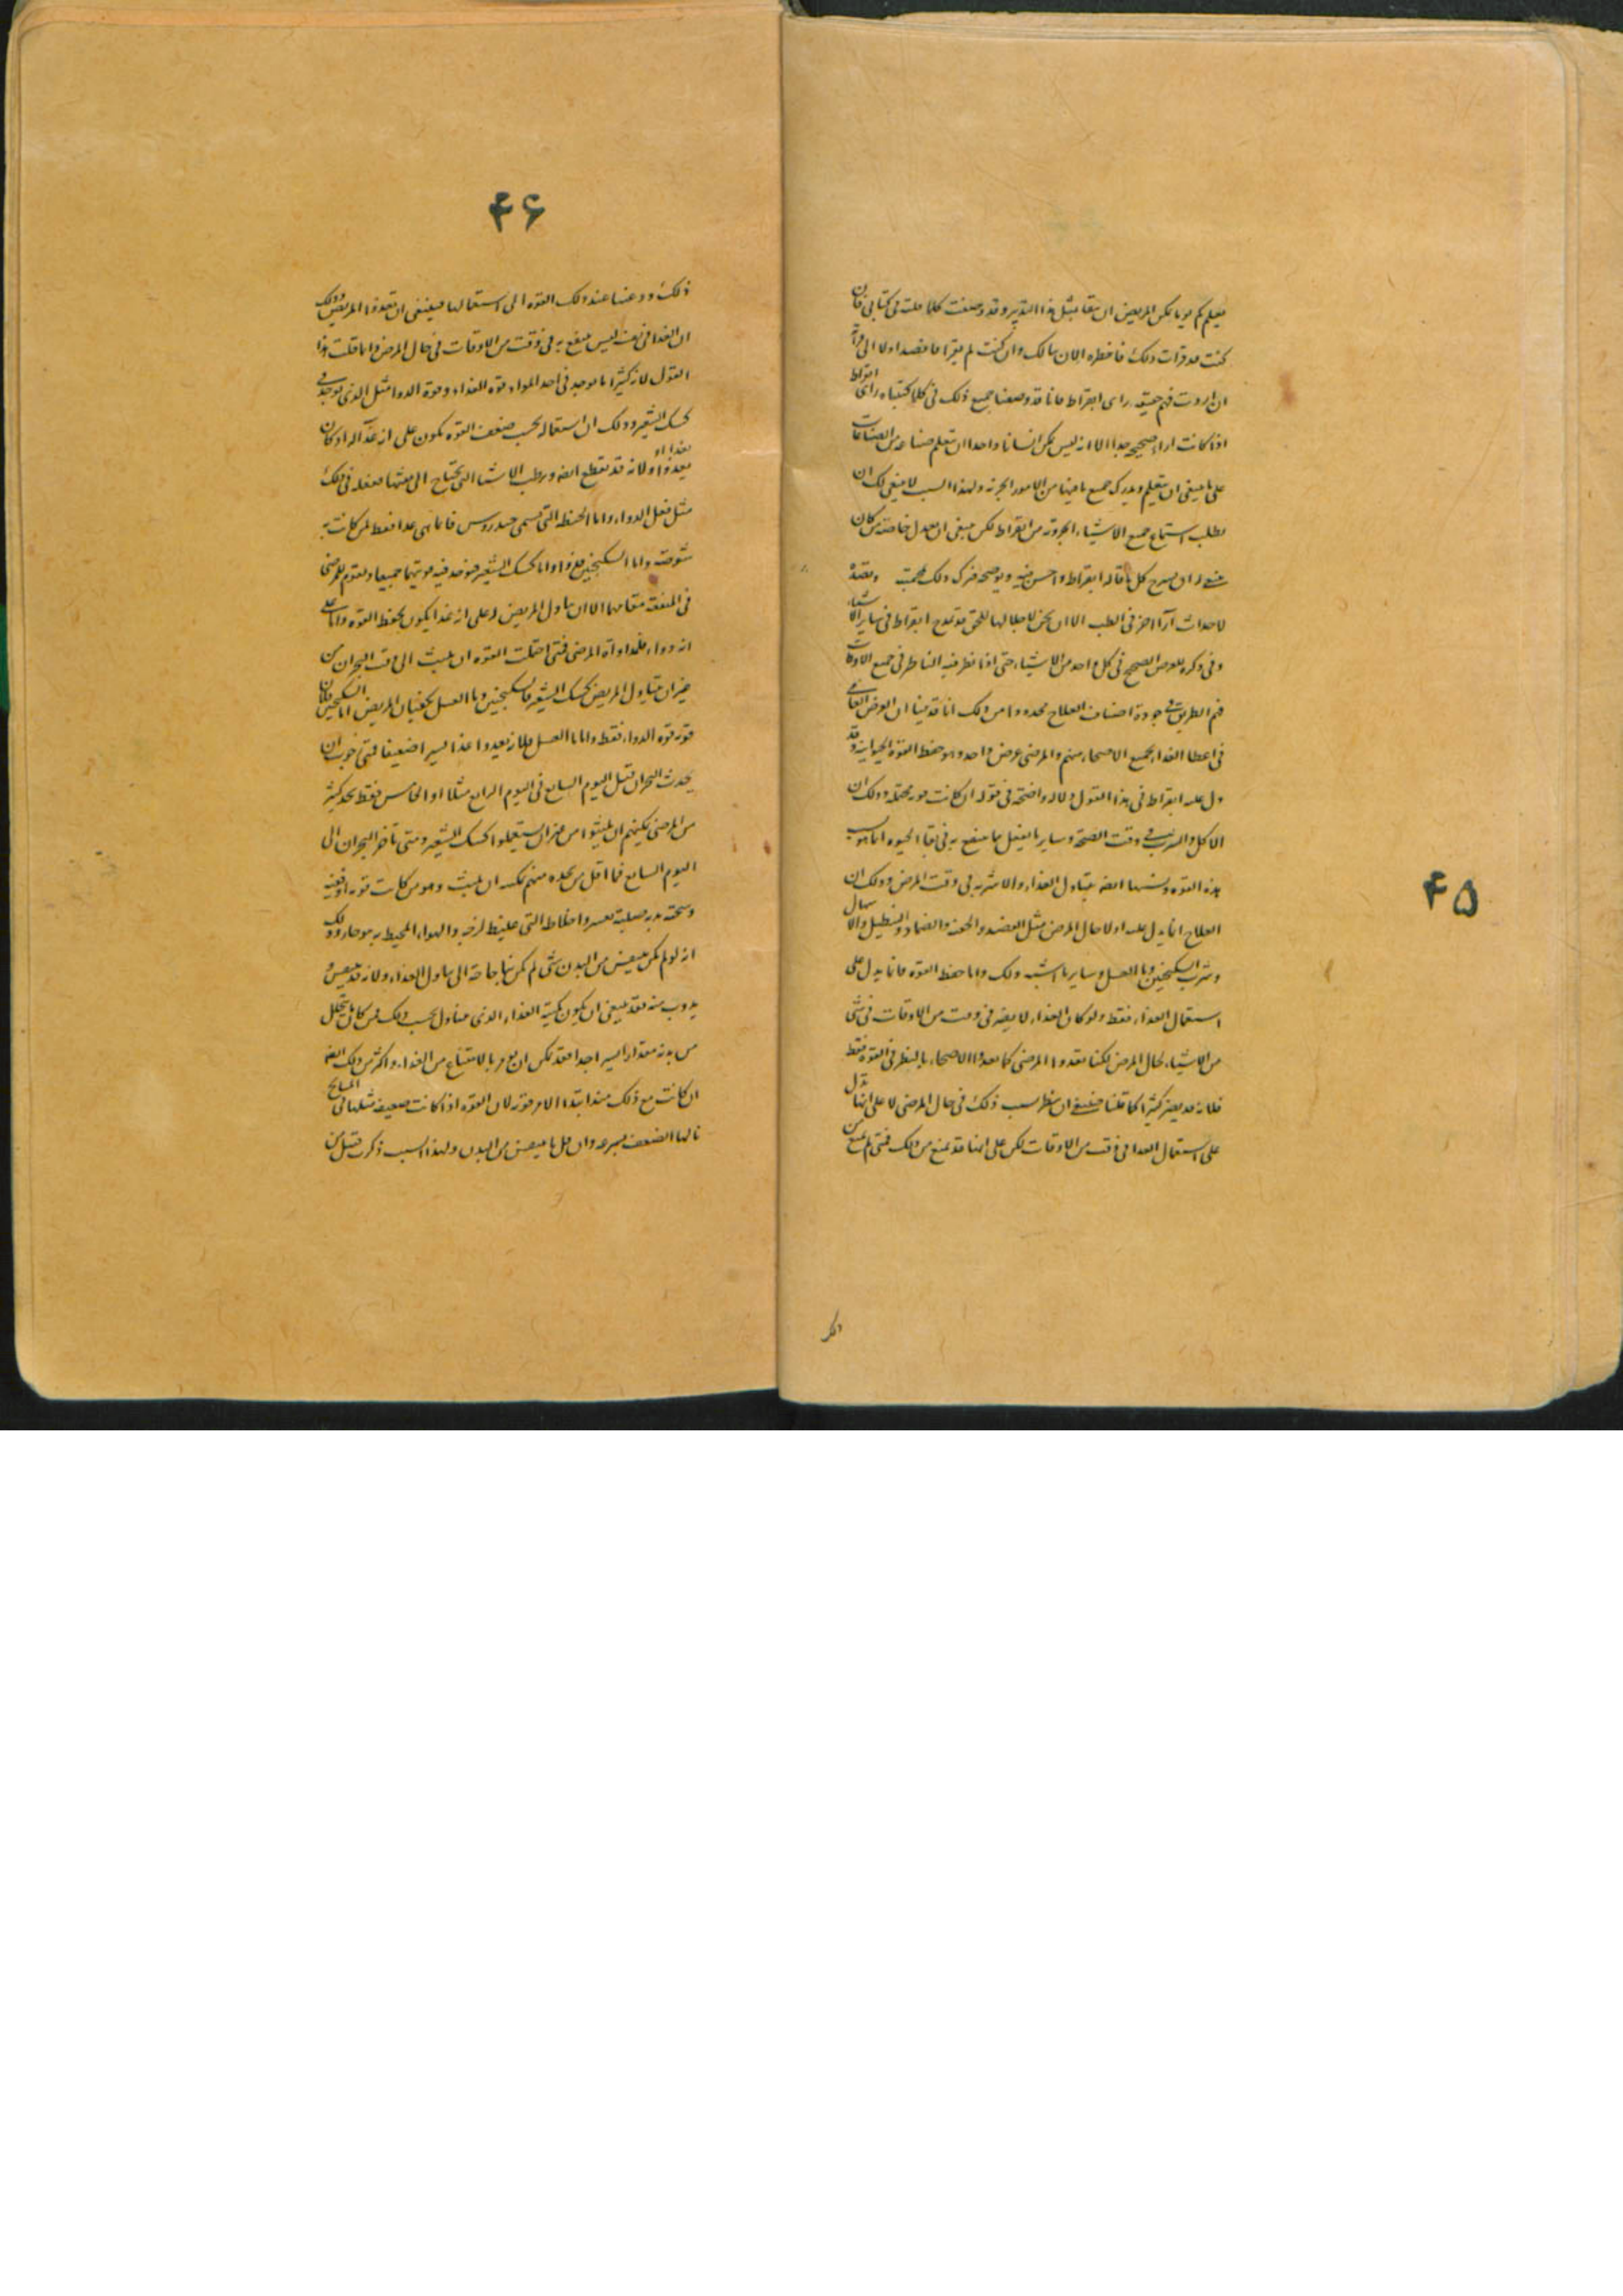 ۴۵
فيعلم كم يوما يمكن المريض ان يبقا بمثل هذا التدبير وقد وصفت كلما قلت فى كتابى فان
كنت قد قرات ذلك فاخطره الان ببالك وان كنت لم تقرا فاقصد اولا الى قراته
ان اردت فهم حقيقه راى ابقراط فانا قد وصفنا جميع ذلك فى كلما كتبناه راى ابقراط
اذا كانت اراء صحيحه جدا الا انه ليس يمكن انسانا واحدا ان يتعلم صناعه من الصناعات
على ما ينبغى ان يتعلم ويدرك جميع ما فيها من الامور الجزئه ولهذا السبب لا ينبغى لك ان
تطلب استماع جميع الاشياء الجزويه من ابقراط لكن ينبغى ان يعدل خاصة من كان
ينبغى له ان يشرح كل ما قاله ابقراط واحسن فيه ويوضحه فترك ذلك بجهته وقصد
لاحداث آرا اخر فى الطب الا ان نحن لاجلالها للحق قد نمدح ابقراط فى ساير الاشياء
وفى ذكره للعرض الصحيح فى كل واحد من الاشياء حتى اذا نظر فيه الناظر فى جميع الاوقات
فهم الطريق فى جودة اصناف العلاج محدودا من ذلك انا قد بينا ان العرض العامى
فى اعطا الغذاء لجميع الاصحاء منهم والمرضى عرض واحد وهو حفظ القوة الحيوانيه وقد
دل عليه ابقراط فى هذا القول دلاله واضحة فى قوله ان كانت قوته محتمله وذلك ان
الاكل والشرب فى وقت الصحة وساير ما يفعل مما ينفع به فى بقا الحيوه انما هو بسبب
هذه القوه وبسببها ايضه يتناول الغذاء والاشربه فى وقت المرض وذلك ان
العلاج انما يدل عليه اولا حال المرض مثل الفصد والحقنه والضماد والنطيل والاسهال
وشرب السكنجبين وما العسل وساير ما اشبه ذلك واما حفظ القوة فانما يدل على
استعمال الغذاء فقط ولو كان الغذاء لا يضر فى وقت من الاوقات فى شى
من الاشياء بحال المرض لكنا نغدوا المرضى كما نغدوا الاصحاء بالنظر فى القوة فقط
فلانه قد يضر كثيرا كما قلنا فينبغى ان ينظر بسبب ذلك فى حال المرضى لا على انها تدل
على استعمال الغذا فى وقت من الاوقات لكن على انها قد تمنع من ذلك فمتى لم تمنع من
۴۶
ذلك ودعتنا عند ذلك القوه الى استعمالها فينبغى ان نغدوا المريض وذلك
ان الغذا فى نفسه ليس ينفع به فى وقت من الاوقات فى حال المرض وانما قلت هذا
القول لانه كثيرا ما يوجد فى احد المواد قوة الغذاء وقوة الدوا مثل الذى يوجد فى
كشك الشعير وذلك ان استعماله بحسب ضعف القوه يكون على انه غذآله اذ كان
يغدوا ولانه قد يقطع ايضه ويرطب الاشيا التى يحتاج الى نفثها ففعله فى ذلك
مثل فعل الدواء واما الحنطه التى تسمى حندروس فانما هى غدا فقط لمن كانت به
شوصة واما السكنجبين فدوا واما كشك الشعير فتوجد فيه قوتيهما جميعا ويقوم للمرضى
فى المنفعة مقامهما الا ان يناول المريض له على انه غذا يكون بحفظ القوه واما على
انه دواء فلمداواة المرضى فمتى احتملت القوه ان يلبث الى وقت البحران من
غير ان يتناول المريض كشك الشعير فالسكنجبين وما العسل يكفيان المريض اما السكنجبين فلان
قوته قوة الدواء فقط واما ما العسل فلانه يغدوا غذا يسيرا ضعيفا فمتى خوب ان
يحدث البحران قبل اليوم السابع فى اليوم الرابع مثلا او الخامس فقط نجد كثير
من المرضى يمكنهم ان يلبثوا من غير ان يستعملوا كشك الشعير ومتى تاخر البحران الى
اليوم السابع فما اقل من نجده منهم يمكنه ان يلبث وهو من كانت قوته قويه
وسحنة بدنه صلبة تعسر واخلاطه التى غليظ لزجه والهواء المحيط به هو حار وذلك
انه لو لم يكن ينقص من البدن شى لم يكن بنا حاجة الى تناول الغذاء ولانه قد ينقص و
يذوب منه فقد ينبغى ان يكون كمية الغذاء الذى يتناول بحسب ذلك فمن كان ما يتحلل
من بدنه مقدارا يسيرا جدا فقد يمكن ان يؤمر بالامتناع من الغذاء واكثر من ذلك ايضه
ان كانت مع ذلك منذ ابتداء الامر قويه لان القوه اذا كانت ضعيفه مثلها فى المشايخ
نالها الضعف بسرعه وان قل ما ينقص من البدن ولهذا السبب ذكرت قبيل من